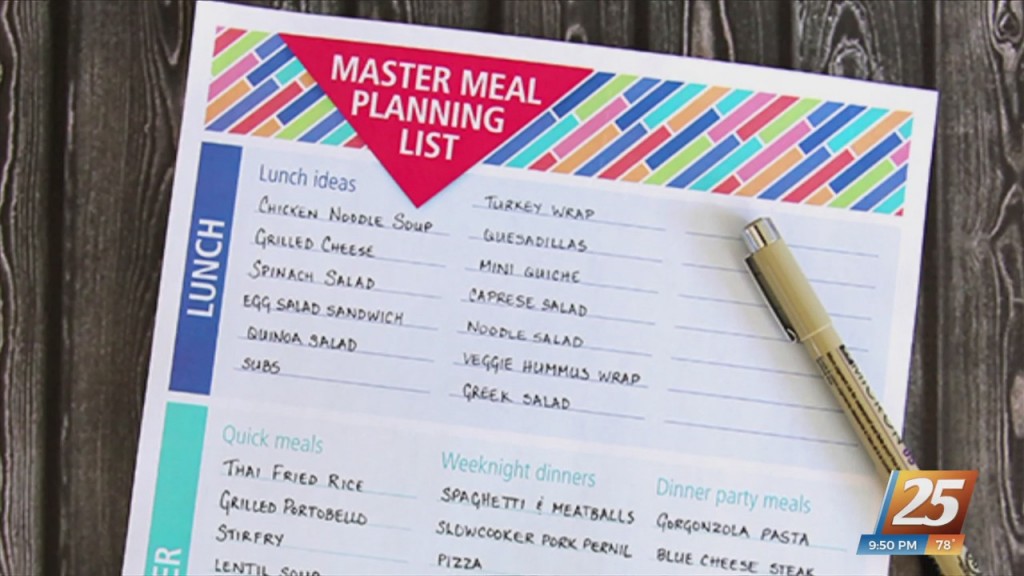 MASTER MEAL
PLANNING
LIST
LUNCH
Lunch ideas
CHICKEN NOODLE SOUP
GRILLED CHEESE
SPINACH SALAD
EGG SALAD SANDWICH
QUINOA SALAD
SUBS
TURKEY WRAP
QUESADILLAS
MINI QUICHE
CAPRESE SALAD
NOODLE SALAD
VEGGIE HUMMUS WRAP
GREEK SALAD
ER
Quick meals
THAI FRIED RICE
GRILLED PORTOBELLO
STIRFRY
LENTIL SOUP
Weeknight dinners
SPAGHETTI & MEATBALLS
SLOWCOOKER PORK PERNIL
PIZZA
Dinner party meals
GORGONZOLA PASTA
BLUE CHEESE STEAK
25
9:50 PM 78°